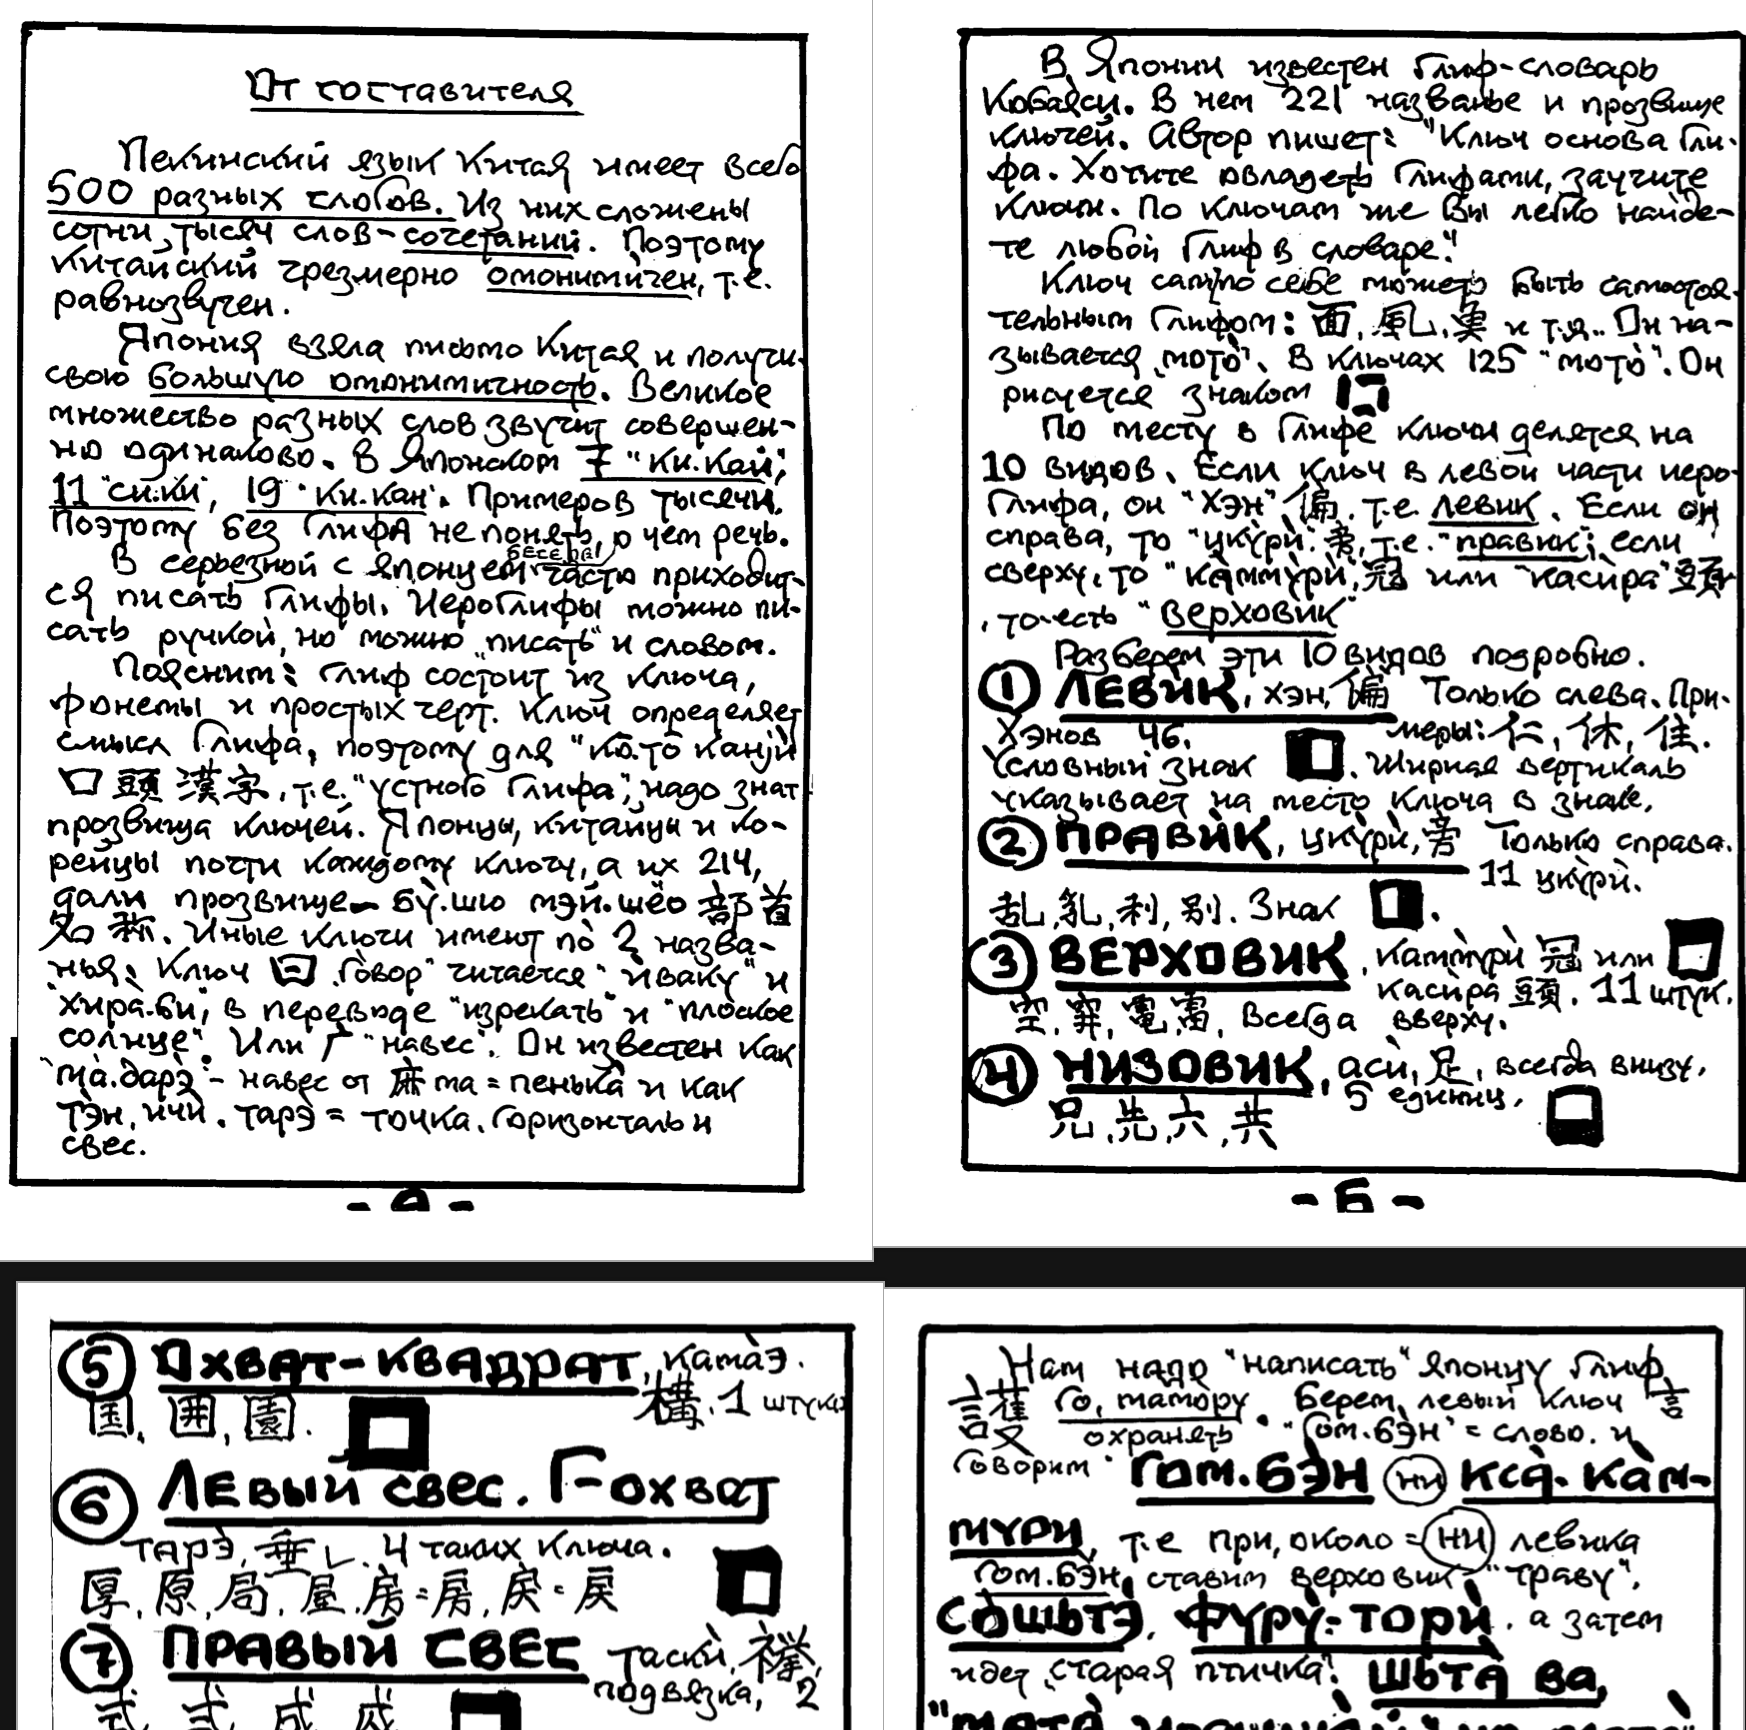 От составителя
Пекинский язык Китая имеет всего
500 разных слогов. Из них сложены
сотни тысяч слов-сочетаний. Поэтому
китайский чрезмерно омонимичен, т.е.
равнозвучен.
Япония взяла письмо Китая и получи-
свою большую омонимичность. Великое
множество разных слов звучит совершен-
но одинаково. В Японском 7 "ки.кай",
11 "си.ки", 19 "ки.кан". Примеров тысячи.
Поэтому без Глифа не понять, о чем речь.
беседы
В серьезной с японцем часто приходит-
ся писать Глифы. Иероглифы можно пи-
сать ручкой, но можно "писать" и словом.
Поясним: Глиф состоит из ключа,
фонемы и простых черт. Ключ определяет
смысл Глифа, поэтому для "ко.то кандзи
口頭漢字, т.е. "устного Глифа", надо знат
прозвища ключей. Японцы, китайцы и ко-
рейцы почти каждому ключу, а их 214,
дали прозвище - бу.шю мэй.шёо 部首
名称. Иные ключи имеют по 2 назва-
нья. Ключ 曰 "Говор" читается "иваку" и
"хира.би", в переводе "изрекать" и "плоское
солнце". Или 广 "навес". Он известен как
"ма.дарэ" - навес от 麻 ма = пенька и как
тэн.ичи.тарэ = точка. Горизонталь и
свес.
- а -
В Японии известен Глиф-словарь
Кобаяси. В нем 221 названье и прозвище
ключей. Автор пишет: "Ключ основа Гли-
фа. Хотите овладеть Глифами, заучите
Ключи. По Ключам же Вы легко найде-
те любой Глиф в словаре".
Ключ сам по себе может быть самостоя-
тельным Глифом: 面, 風, 魚 и т.д.. Он на-
зывается "мото". В ключах 125 "мото". Он
рисуется знаком
По месту в Глифе ключи делятся на
10 видов. Если ключ в левой части иеро-
Глифа, он "хэн" 偏, т.е. левик. Если он
справа, то "цкури" 旁, т.е. "правик"; если
сверху, то "каммури", 冠 или "касира" 頭
, то-есть "Верховик"
Разберем эти 10 видов подробно.
① ЛЕВИК, хэн, 偏 Только слева. При-
Хэнов 46. меры: 仁, 休, 住.
Условный знак . Жирная вертикаль
указывает на место Ключа в знаке.
② ПРАВИК, цкури, 旁 Только справа.
11 цкури.
乱, 乳, 利, 别. Знак .
③ ВЕРХОВИК, каммури 冠 или
касира 頭. 11 штук.
空, 穽, 電, 雷, Всегда вверху.
④ НИЗОВИК, аси, 足, всегда внизу,
5 единиц.
兄, 先, 六, 共
- Б -
⑤ ОХВАТ-КВАДРАТ, Камаэ.
国, 囲, 園. 構. 1 штука
⑥ ЛЕвый свес. Г-охват
тарэ, 垂し. 4 таких ключа.
厚, 原, 局, 屋, 房=房, 戻=戾
⑦ ПРАВЫЙ СВЕС Таски, 襷,
подвязка, 2
式
Нам надо "написать" японцу Глиф
護 Го, мамору. Берем, левый Ключ 言
охранять. "Гом.бэн" = слово. и
Говорим: Гом.бэн ни кса.кам-
мури, т.е при, около = ни левика
Гом.бэн, ставим верховик "траву".
СОШЬТЭ, ФУРУ-ТОРИ, а затем
идет "старая птичка". ШЬТА ва,